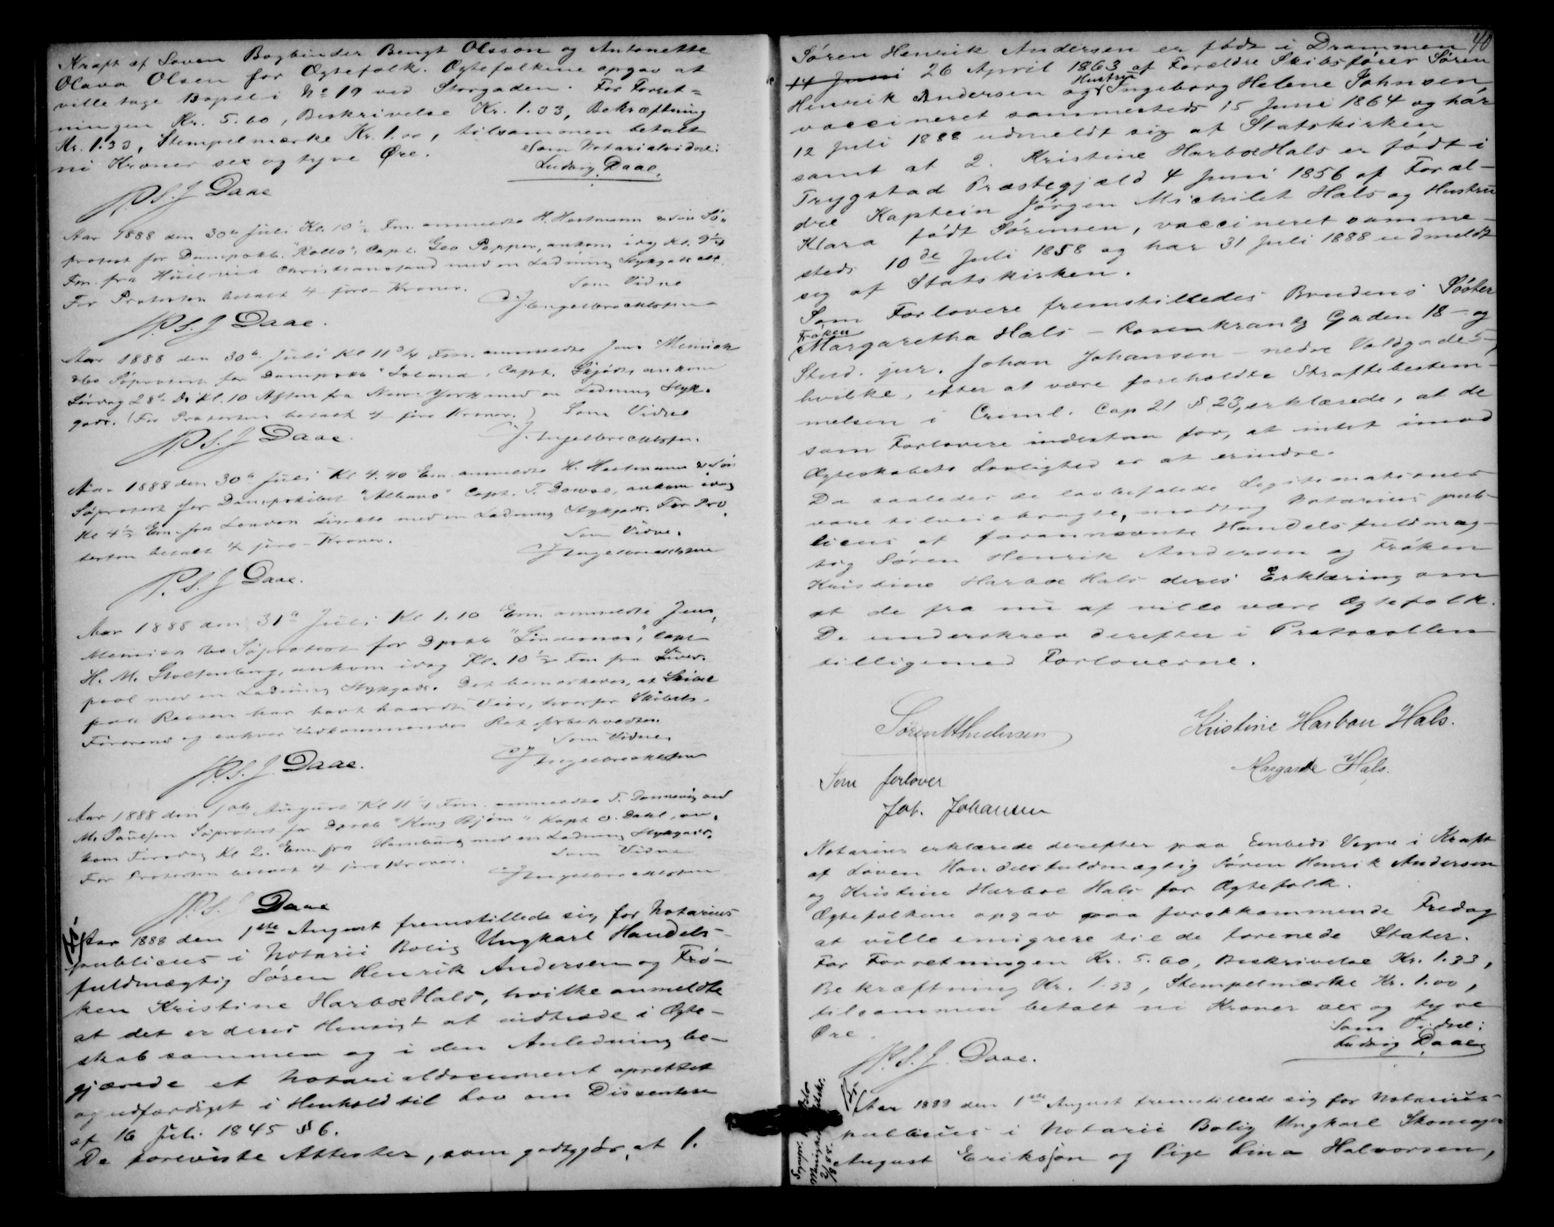 Kraft af Loven Bogbinder Bengt Olsson og Antonette
Olava Olsen for Ægtefolk. Ægtefolkene opgav at
ville tage Bopæl i No 19 ved Storgaden. For Forret=
ningen Kr. 5.60, Beskrivelse Kr. 1.33, Bekræftning
Kr. 1.33, Stempelmærke Kr. 1.00, tilsammen betalt
ni Kroner sex og tyve Øre.
Som Notarialvidne:
Ludvig Daae.
P.S.J Daae
Aar 1888 den 30te Juli Kl. 10½ Fm. anmeldte H. Hartmann Sø-
protest for Dampskb. "Rollo", Capt. Geo Pepper, ankom idag Kl.
Fm. fra Hull via Christianssand med en Ladning Stykgods.
For Protesten betalt 4 fire Kroner.
Som Vidne
J Engelbrechtsen
P.S.J Daae.
Aar 1888 den 30te Juli Kl 11¾ Fm. anmeldte Jens Meinich
&Co Søprotest for Dampskb "Island", Capt. ankom
Lørdag 28de Ds Kl. 10 Aften fra New-York med en Ladning Styk-
gods. (For Protesten betalt 4 fire Kroner.) Som Vidne
J. Engelbrechtsen.
P.S.J Daae.
Aar 1888 den 30te Juli Kl 4.40 Em. anmeldte H. Hartmann
Søprotest for Dampskibet "Albano" Capt. ankom idag
Kl 4½ Em. fra London direkte med en Ladning Stykgods. For Pro-
testen betalt 4 fire Kroner.
Som Vidne.
J Engelbrechtsen
P.S.J Daae.
Aar 1888 den 31te Juli Kl 1.10 Em. anmeldte Jens
Meinich &Co Søprotest for Dpskb "Lindesnæs", Capt
H. M. Stoltenberg, ankom idag Kl. 10½ Fm fra Liver-
pool med en Ladning Stykgods. Det bemærkedes, at Skibet
paa Reisen har havt haardt Veir, hvorfor Skibets
Fører og enhver Vedkommendes Ret forbeholdtes
Som Vidne.
J Engelbrechtsen
P.S.J Daae.
Aar 1888 den 1ste August Kl 11¼ Fm. anmeldte T. Dannevig ved
M. Paulsen Søprotest for Dpskb "Kong Bjørn" Kapt O. Dahl, an-
kom Tirsdag Kl 2. Em. fra Hamburg med en Ladning Stykgods.
For Protesten betalt 4 fire Kroner.
Som Vidne
J Engelbrechtsen
P.S.J Daae
Aar 1888 den 1ste August fremstillede sig for Notarius
publicus i Notarii Bolig Ungkarl Handels-
fuldmægtig Søren Henrik Andersen og Frø-
ken Kristine Harboe Hals, hvilke anmeldte
at det er deres Hensigt at indtræde i Ægte-
skab sammen og i den Anledning be-
gjærede et Notarialdocument oprettet
og udfærdiget i Henhold til Lov om Dissentere
af 16 Juli 1845 § 6.
De foreviste Attester, som godtgjør, at 1.
40
Søren Henrik Andersen er født i Drammen
14 Juni 26 April 1863 af Forældre Skibsfører Søren
Henrik Andersen og Hustru Ingeborg Helene Johnsen,
vaccineret sammesteds 15 Juni 1864 og har
12 Juli 1888 udmeldt sig af Statskirken
samt at 2. Kristine Harboe Hals er født i
Trygstad Præstegjæld 4 Juni 1856 af Foræl-
dre Kaptein Jørgen Michelet Hals og Hustru
Klara født Sørensen, vaccineret samme-
steds 10de Juli 1858 og har 31 Juli 1888 udmeldt
sig af Statskirken.
Som Forlovere fremstilledes Brudens Søster
Frøken Margaretha Hals - Rosenkrantz Gaden 18 - og
Stud. jur. Johan Johansen - nedre Voldgade 5 -,
hvilke, efter at være foreholdte Straffebestem-
melsen i Criml. Cap 21 § 23, erklærede, at de
som Forlovere indestaa for, at intet imod
Ægteskabets Lovlighed er at erindre.
Da saaledes de lovbefalede Legitimationer
vare tilveiebragte, modtog Notarius pub-
licus af forannævnte Handelsfuldmæg-
tig Søren Henrik Andersen og Frøken
Kristine Harboe Hals deres Erklæring om
at de fra nu af ville være Ægtefolk.
De underskrev derefter i Protocollen
tilligemed Forloverne.
Søren H Andersen
Kristine Harboe Hals.
Margarete Hals.
Som forlover
Joh. Johansen
Notarius erklærede derefter paa Embeds Vegne i Kraft
af Loven Handelsfuldmægtig Søren Henrik Andersen
og Kristine Harboe Hals for Ægtefolk.
Ægtefolkene opgav paa førstkommende Fredag
at ville emigrere til de forenede Stater.
For Forretningen Kr. 5.60, Beskrivelse Kr. 1.33,
Bekræftning Kr. 1.33, Stempelmærke Kr. 1.00,
tilsammen betalt ni Kroner sex og tyve
Øre.
Som Vidne:
Ludvig Daae
P.S.J. Daae.
Aar 1888 den 1ste August fremstillede sig for Notarius
publicus i Notarii Bolig Ungkarl Skomager
August Eriksson og Pige Lina Halvorsen,